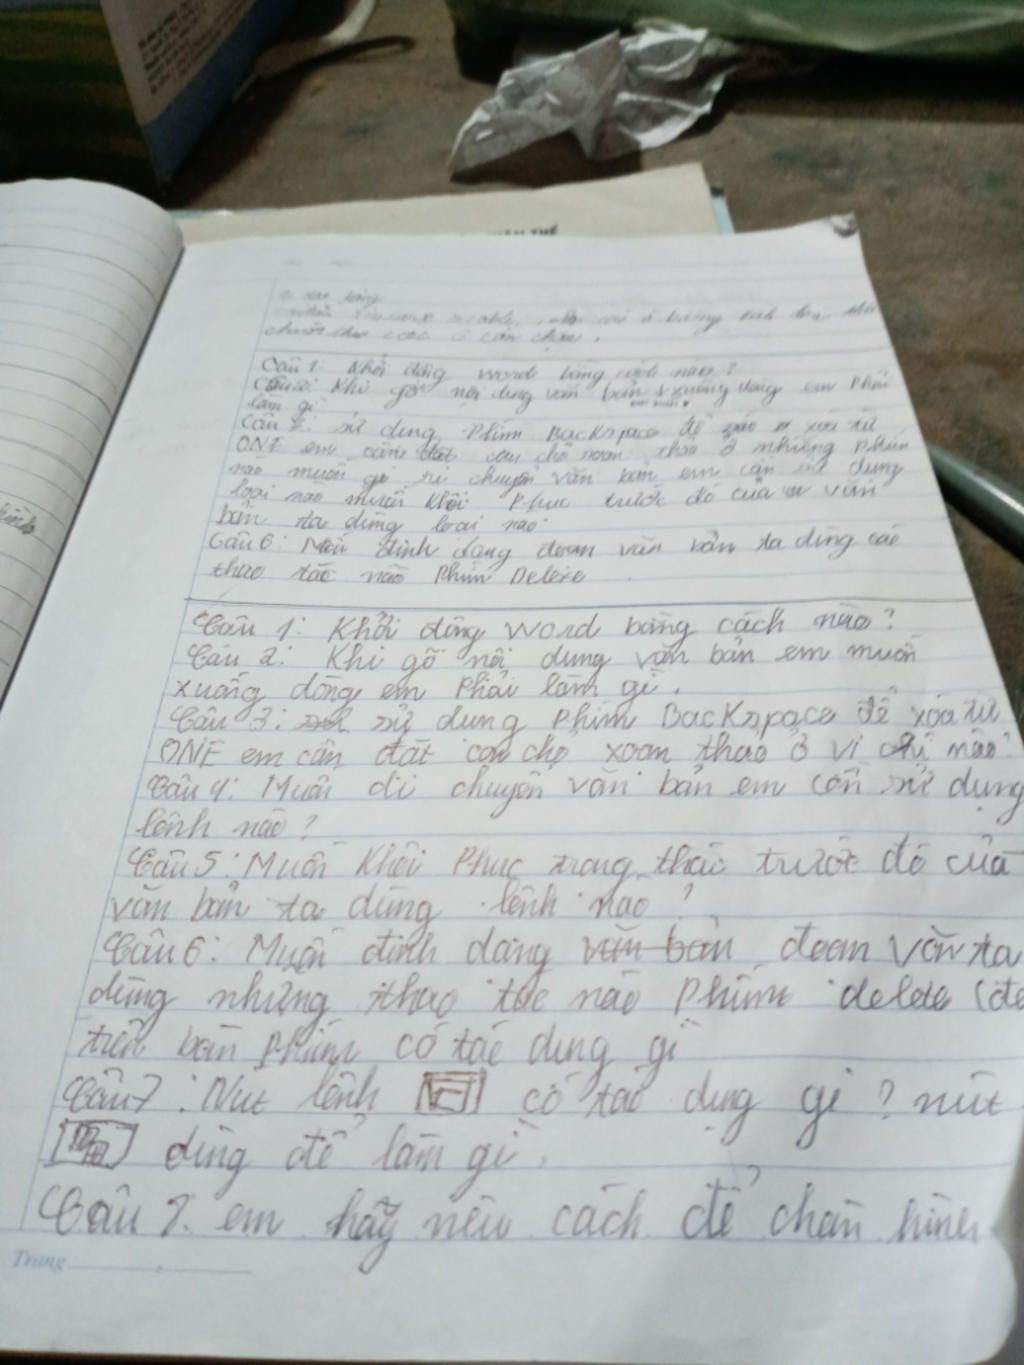 Câu 1: Khởi động word bằng cách nào?
Khi gõ nội dung văn bản xuống dòng em Phải
làm gì
sử dụng Phím Backspace để xóa từ
ONE em cần đặt con chỏ soan thảo ở những Phím
nào muốn di chuyển văn bản em cần sử dụng
loại nào muốn Khôi Phục trước đó của văn
bản ta dùng loại nào
Câu 6: Muốn định dạng đoạn văn bản ta dùng các
thao tác nào Phím Delete
Câu 1: Khởi động word bằng cách nào?
Câu 2: Khi gõ nội dung văn bản em muốn
xuống dòng em Phải làm gì.
Câu 3: sử dung Phím Backspace để xóa từ
ONE em cần đặt con chỏ xoan thao ở vi chí nào?
Câu 4: Muốn di chuyển văn bản em cần sử dụng
lệnh nào?
Câu 5: Muốn Khôi Phục trang thái trước đó của
văn bản ta dùng lệnh nào?
Câu 6: Muốn định dạng văn bản đoan văn ta
dùng những thao tác nào Phím delete (de
trên bàn Phím có tác dụng gì
Câu 7: Nut lệnh có tác dụng gì? nút
dùng để làm gì.
Câu 8. em hãy nêu cách để chèn hình
Trang